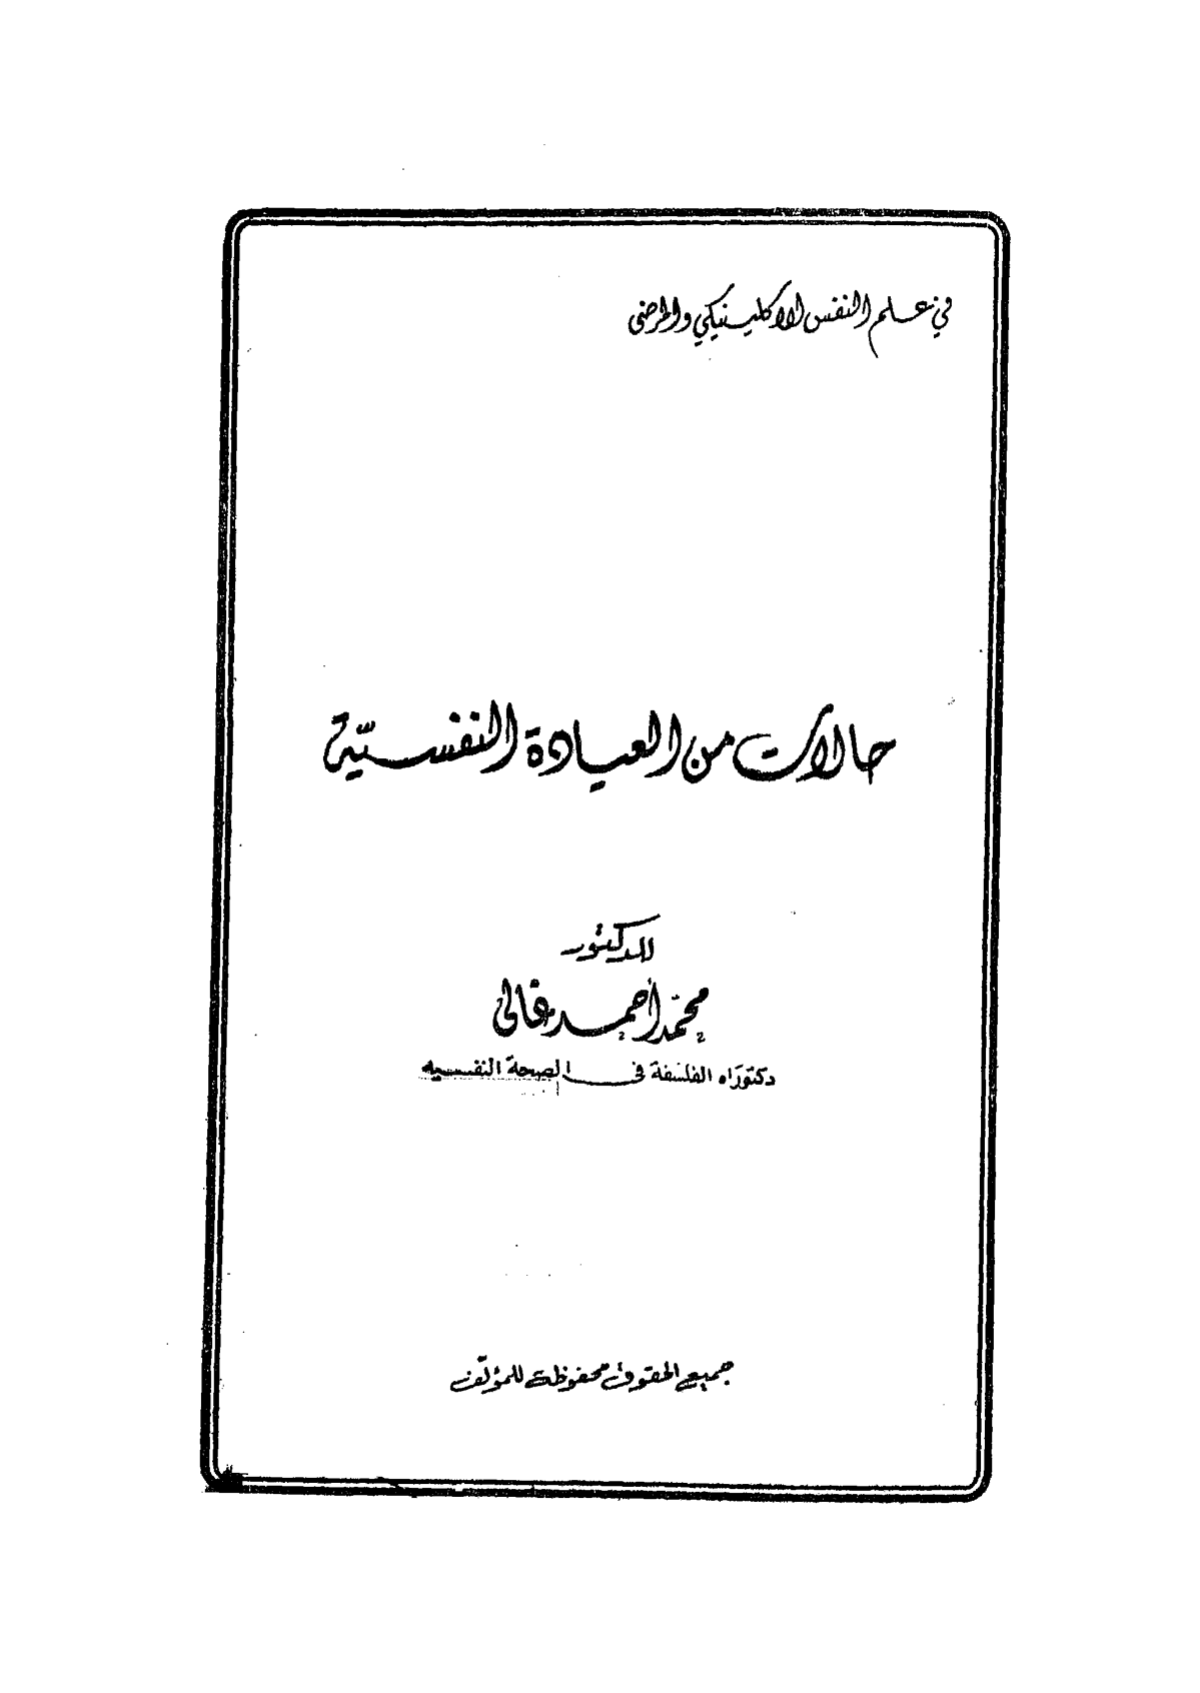 في علم النفس الاكلينيكي والمرضى
حالات من العيادة النفسيّة
للدكتور
محمّد أحمد غالى
دكتوراه الفلسفة فى الصحة النفسيه
جميع الحقوق محفوظة للمؤلّف